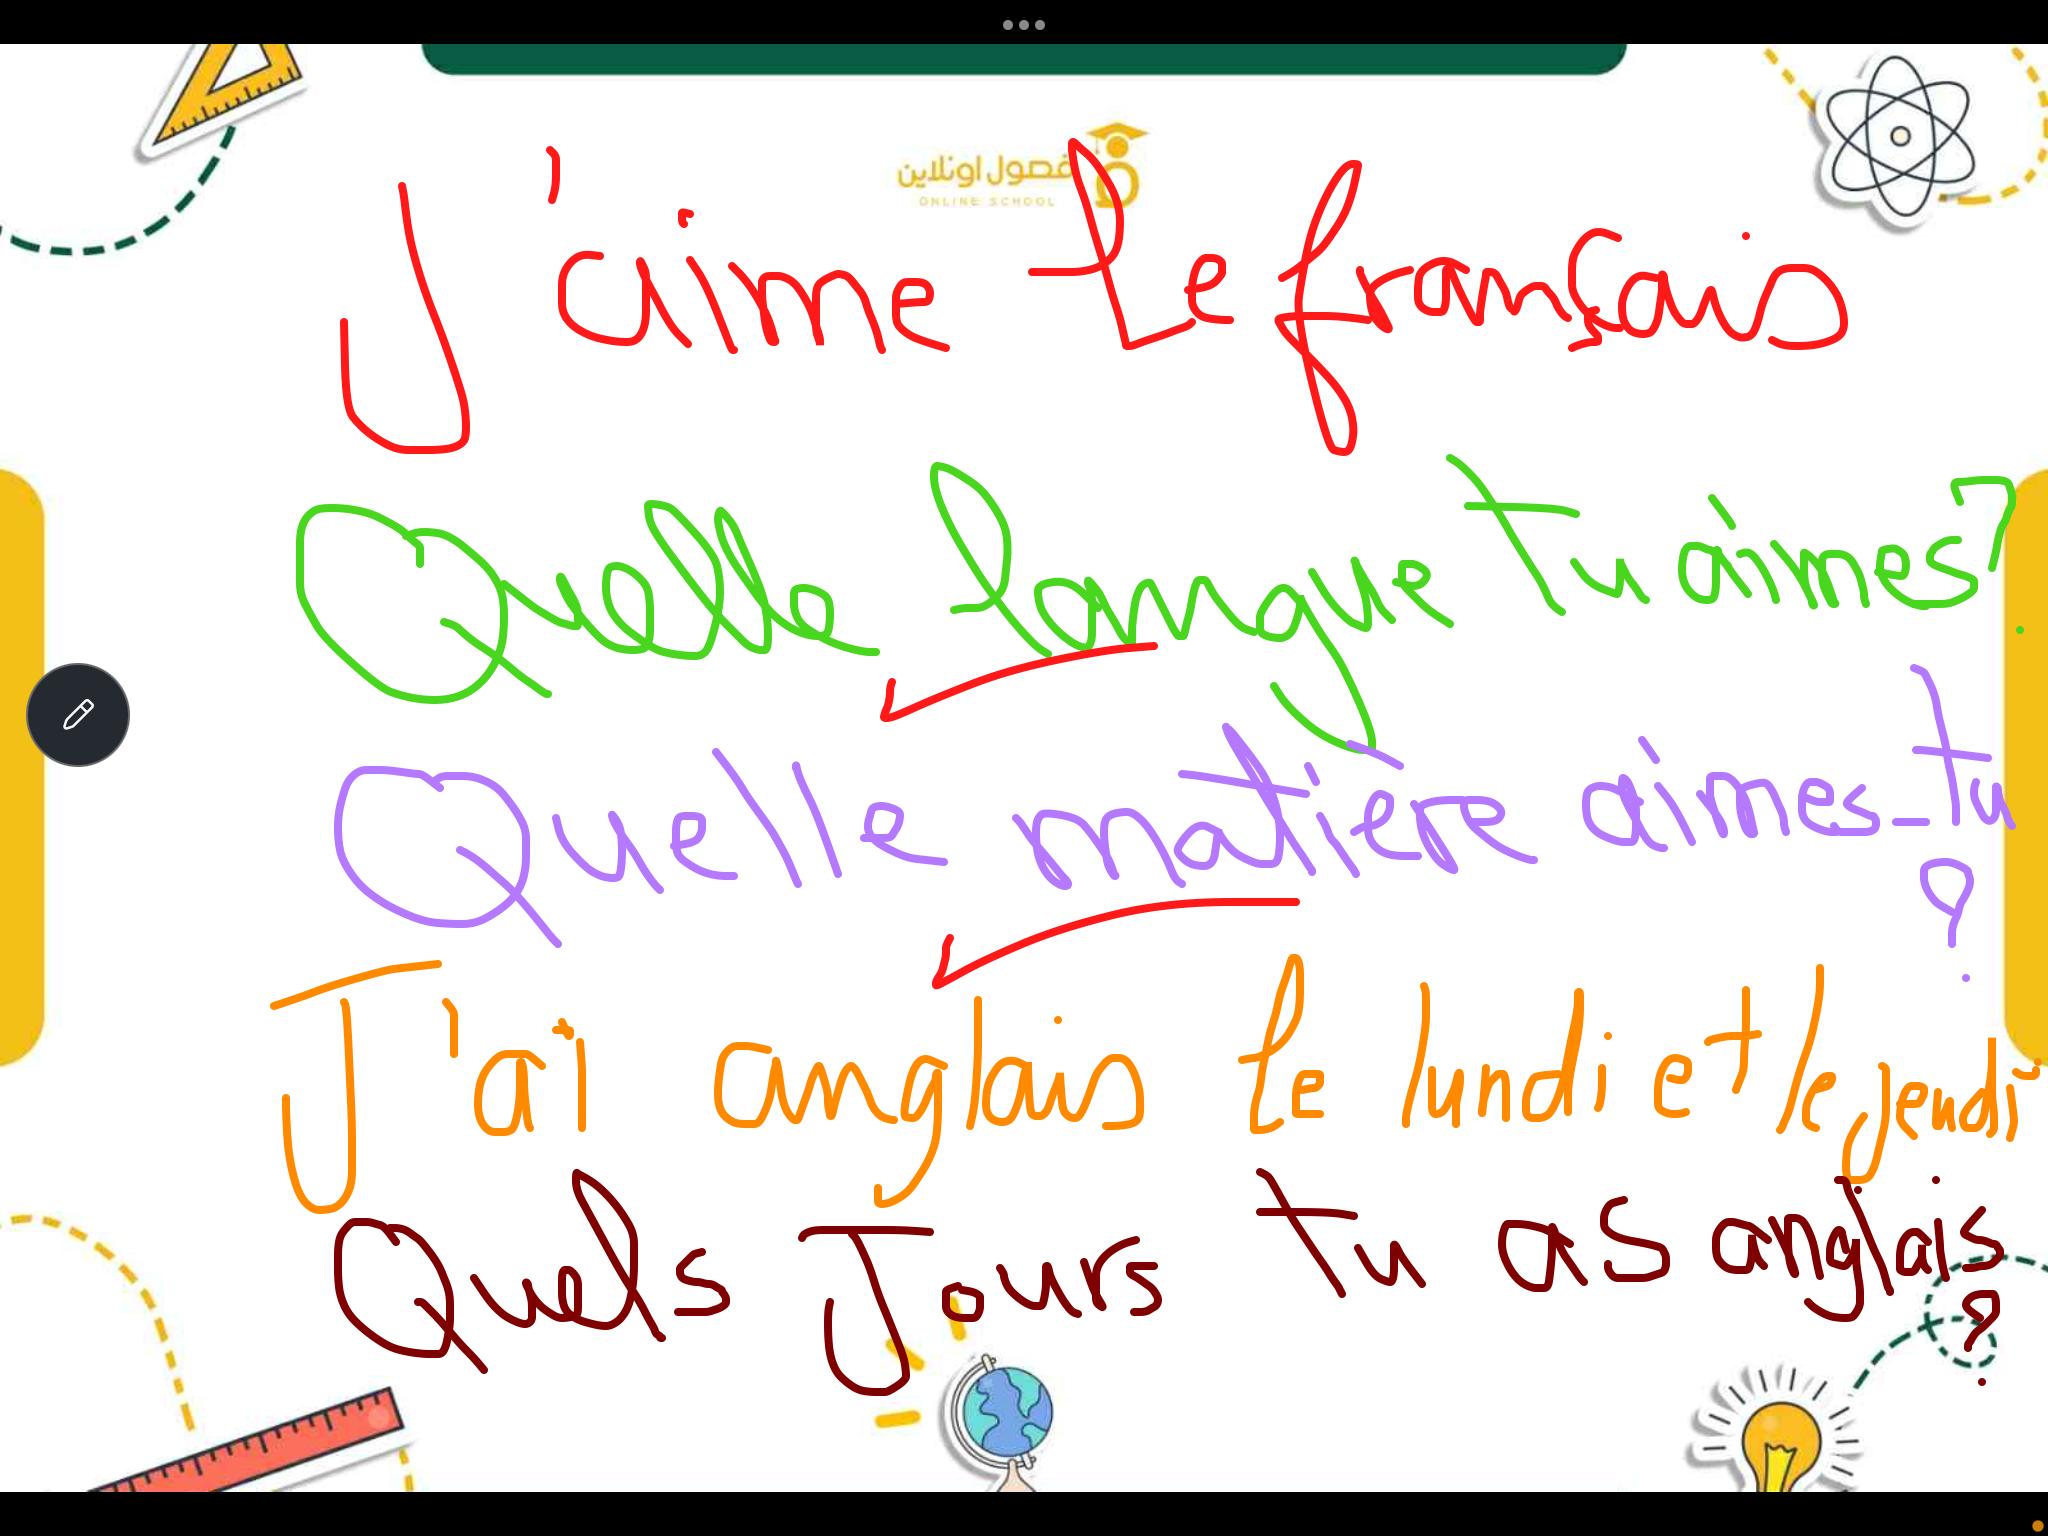 فصول اونلاين
ONLINE SCHOOL
J'aime le français
Quelle langue tu aimes?
Quelle matière aimes-tu ?
J'ai anglais le lundi et le jeudi
Quels Jours tu as anglais ?